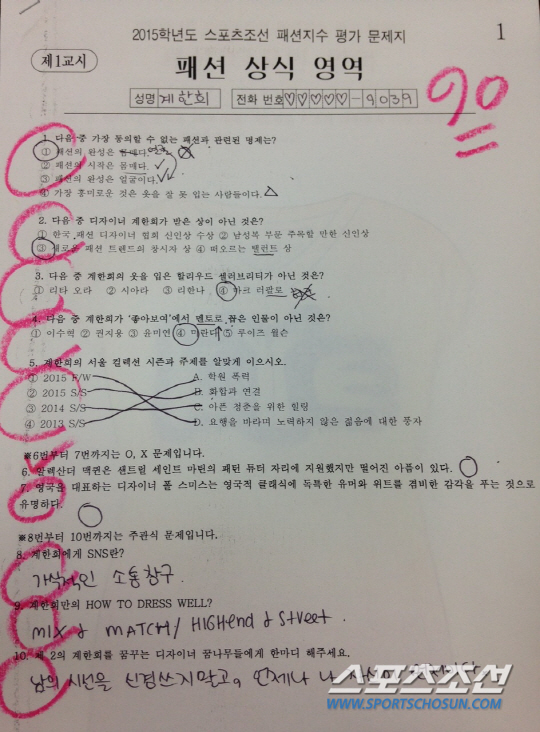 2015학년도 스포츠조선 패션지수 평가 문제지
1
제1교시
패션 상식 영역
성명 계한희 전화 번호 ♡♡♡♡♡-9039
90
1. 다음 중 가장 동의할 수 없는 패션과 관련된 명제는?
① 패션의 완성은 몸매다.
② 패션의 시작은 몸매다.
③ 패션의 완성은 얼굴이다.
④ 가장 흥미로운 것은 옷을 잘 못 입는 사람들이다. △
2. 다음 중 디자이너 계한희가 받은 상이 아닌 것은?
① 한국 패션 디자이너 협회 신인상 수상 ② 남성복 부문 주목할 만한 신인상
③ 새로운 패션 트렌드의 창시자 상 ④ 떠오르는 탤런트 상
3. 다음 중 계한희의 옷을 입은 할리우드 셀러브리티가 아닌 것은?
① 리타 오라 ② 시아라 ③ 리한나 ④ 마크 러팔로
4. 다음 중 계한희가 '좋아보여'에서 멘토로 뽑은 인물이 아닌 것은?
① 이수혁 ② 권지용 ③ 윤미연 ④ 미란다 ⑤ 루이즈 윌슨
5. 계한희의 서울 컬렉션 시즌과 주제를 알맞게 이으시오.
① 2015 F/W A. 학원 폭력
② 2015 S/S B. 화합과 연결
③ 2014 S/S C. 아픈 청춘을 위한 힐링
④ 2013 S/S D. 요행을 바라며 노력하지 않은 젊음에 대한 풍자
※6번부터 7번까지는 O, X 문제입니다.
6. 알렉산더 맥퀸은 샌트럴 세인트 마틴의 패턴 튜터 자리에 지원했지만 떨어진 아픔이 있다. ○
7. 영국을 대표하는 디자이너 폴 스미스는 영국적 클래식에 독특한 유머와 위트를 겸비한 감각을 푸는 것으로
유명하다. ○
※8번부터 10번까지는 주관식 문제입니다.
8. 계한희에게 SNS란?
가식적인 소통창구.
9. 계한희만의 HOW TO DRESS WELL?
MIX & MATCH / HIGHEND & Street.
10. 제 2의 계한희를 꿈꾸는 디자이너 꿈나무들에게 한마디 해주세요.
남의 시선을 신경쓰지말고, 언제나 나
스포츠조선
WWW.SPORTSCHOSUN.COM